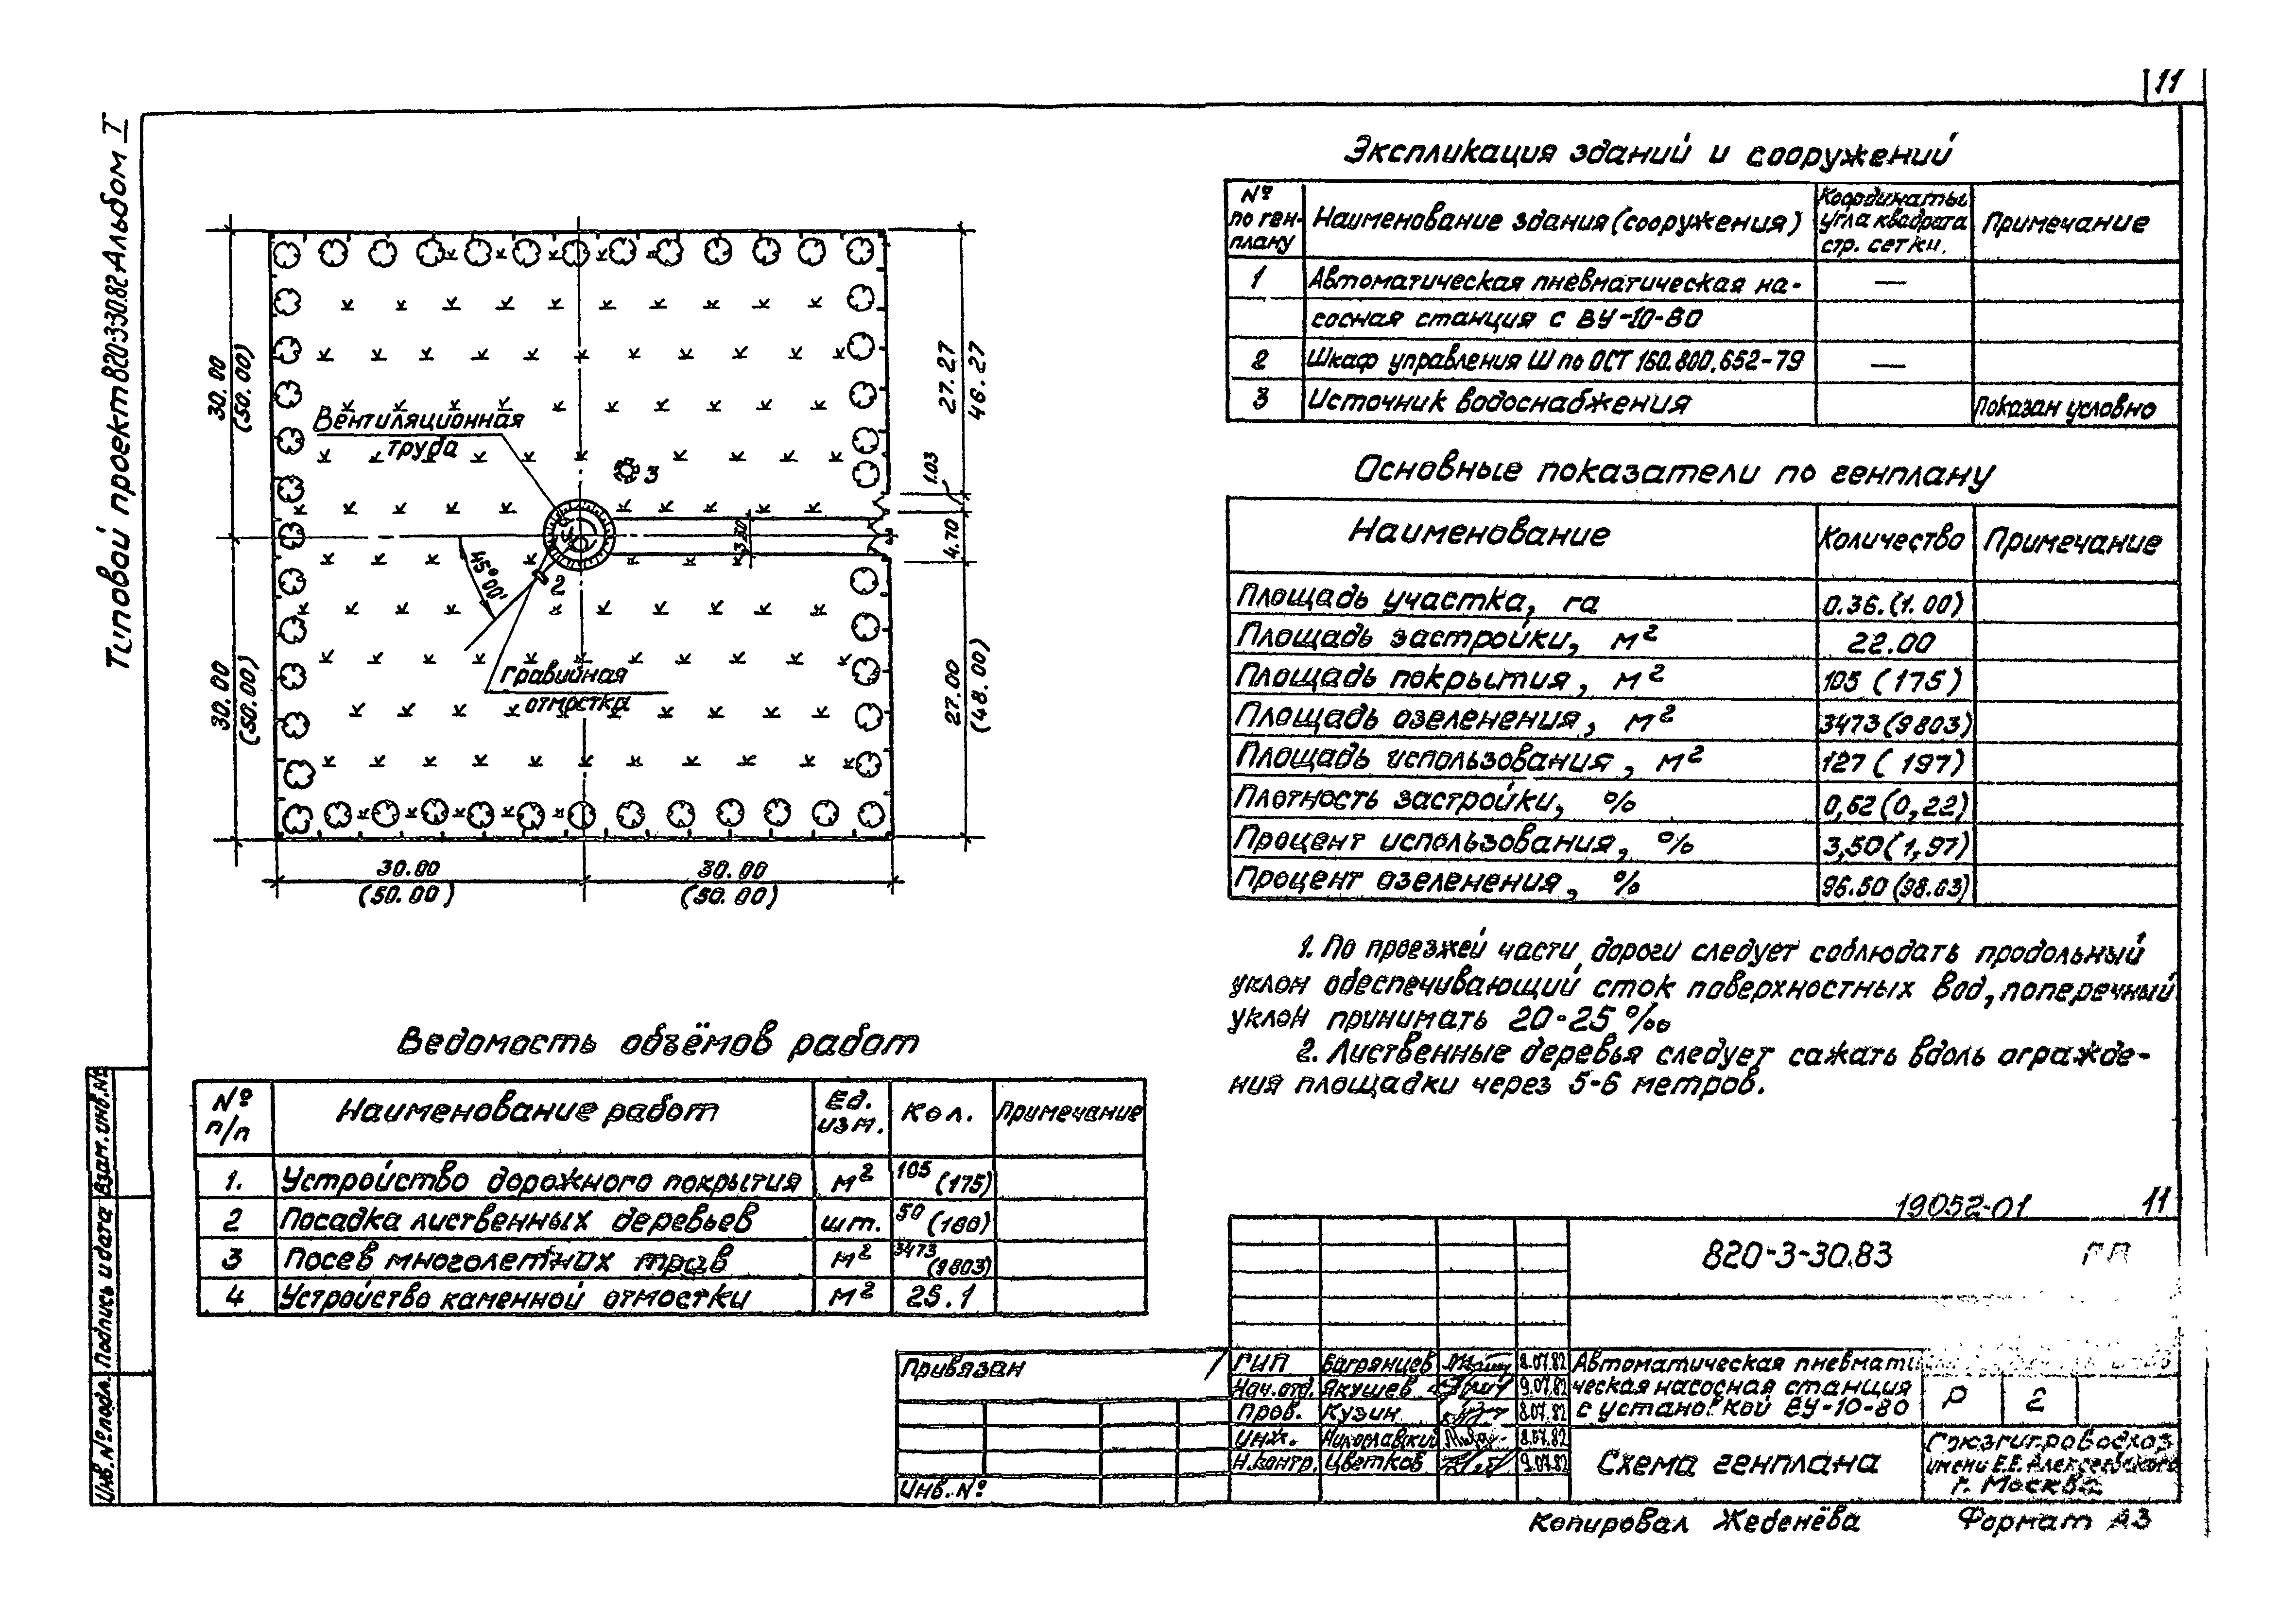 11
Типовой проект 820-3-30.82 Альбом I
Экспликация зданий и сооружений
№ по генплану
Наименование здания (сооружения)
Координаты угла квадрата стр. сетки.
Примечание
1 Автоматическая пневматическая на- —
сосная станция с ВУ-10-80
2 Шкаф управления Ш по ОСТ 160.800.652-79 —
3 Источник водоснабжения Показан условно
Основные показатели по генплану
Наименование Количество Примечание
Площадь участка, га 0.36.(1.00)
Площадь застройки, м² 22.00
Площадь покрытия, м² 105 (175)
Площадь озеленения, м² 3473(9803)
Площадь использования, м² 127 (197)
Плотность застройки, % 0,62(0,22)
Процент использования, % 3,50(1,97)
Процент озеленения, % 96.50(98.03)
1. По проезжей части дороги следует соблюдать продольный
уклон обеспечивающий сток поверхностных вод, поперечный
уклон принимать 20-25 ‰
2. Лиственные деревья следует сажать вдоль огражде-
ния площадки через 5-6 метров.
30.00
(50.00)
30.00
(50.00)
27.27
46.27
1.03
4.70
27.00
(48.00)
3.50
Вентиляционная
труба
3
45°00'
2
Гравийная
отмостка
30.00
(50.00)
30.00
(50.00)
Ведомость объёмов работ
№ п/п
Наименование работ
Ед. изм.
Кол.
Примечание
1. Устройство дорожного покрытия м² 105 (175)
2 Посадка лиственных деревьев шт. 50 (180)
3 Посев многолетних трав м² 3473 (9803)
4 Устройство каменной отмостки м² 25.1
19052-01 11
820-3-30.83 ГП
Привязан
Инв. №
ГИП Багрянцев 8.07.82
Нач.отд. Якушев 9.07.82
Пров. Кузин 8.07.82
Инж. 8.07.82
Н.контр. Цветков 9.07.82
Автоматическая пневмати
ческая насосная станция
с установкой ВУ-10-80
Р 2
Схема генплана
Союзгипроводхоз
имени Е.Е. Алексеевского
г. Москва
Взам. инв. №
Подпись и дата
Инв. № подл.
Копировал Жебенёва Формат А3